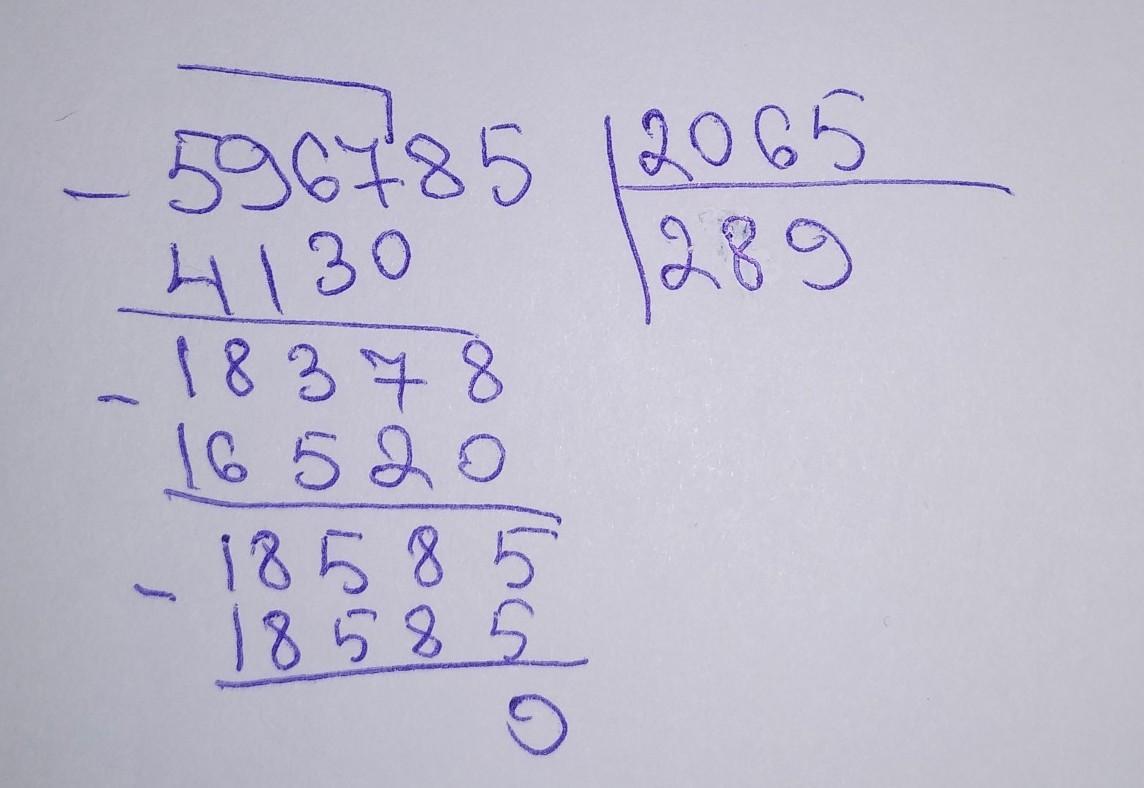 - 596785 | 2065
4130 | 289
- 18378
16520
- 18585
18585
0